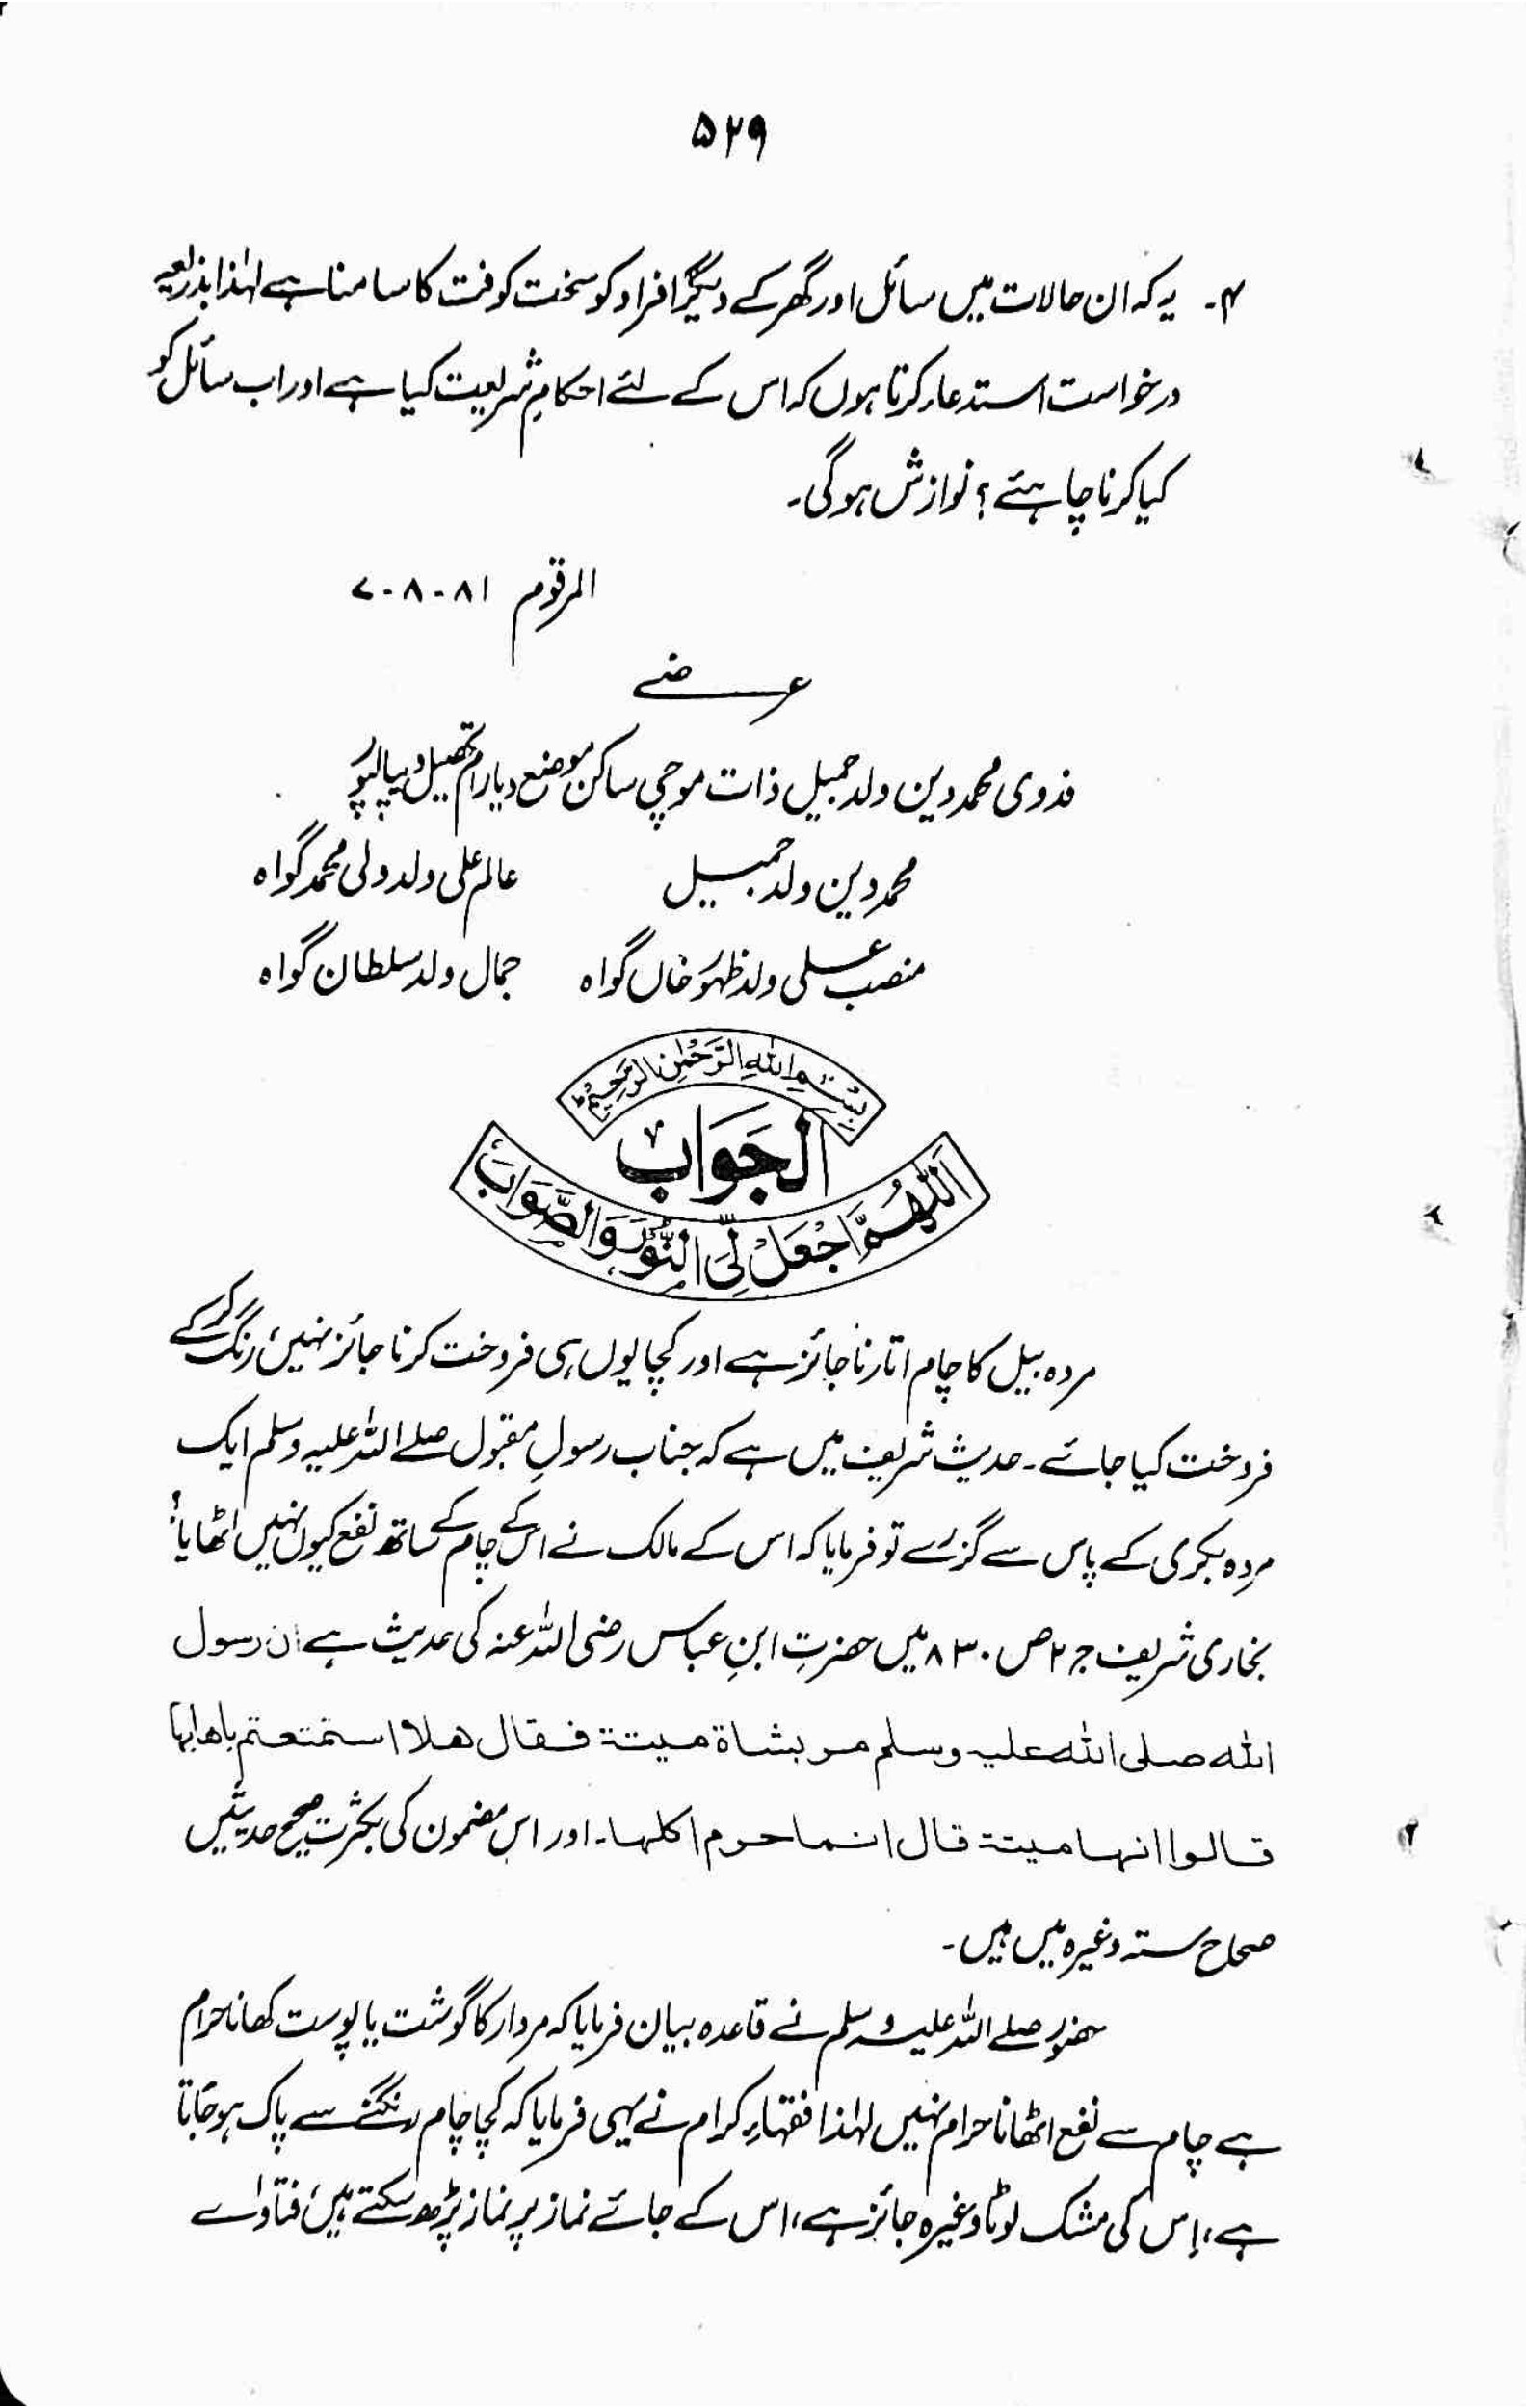 ۵۲۹
۴۔ یہ کہ ان حالات میں سائل اور گھر کے دیگر افراد کو سخت کوفت کا سامنا ہے لہٰذا بذریعہ
درخواست استدعار کرتا ہوں کہ اس کے لئے احکامِ شریعت کیا ہے اور اب سائل کو
کیا کرنا چاہئے؟ نوازش ہوگی۔
المرقوم ۸۱-۸-۷
عرضے
فدوی محمد دین ولد جمیل ذات موچی ساکن موضع دیارام تحصیل دیپالپور
محمد دین ولد جمیل عالم علی ولد ولی محمد گواہ
منصب علی ولد ظہور خاں گواہ جمال ولد سلطان گواہ
بِسْمِ اللهِ الرَّحْمٰنِ الرَّحِيْمِ
اَلجَوَابُ
اَللّٰهُمَّ اجْعَلْ لِّیَ النُّوْرَ وَالصَّوَابَ
مردہ بیل کا چام اتارنا جائز ہے اور کچا یوں ہی فروخت کرنا جائز نہیں، رنگ کر کے
فروخت کیا جائے۔ حدیث شریف میں ہے کہ جناب رسولِ مقبول صلے اللہ علیہ وسلم ایک
مردہ بکری کے پاس سے گزرے تو فرمایا کہ اس کے مالک نے اس کے چام کے ساتھ نفع کیوں نہیں اٹھایا؟
بخاری شریف ج ۲ ص ۸۳۰ میں حضرتِ ابنِ عباس رضی اللہ عنہ کی حدیث ہے ان رسول
الله صلی الله علیه وسلم مر بشاة میتة فقال هلا استمتعتم باهابها
قالوا انها میتة قال انما حرم اکلها۔ اور اس مضمون کی بکثرت صحیح حدیثیں
صحاح ستہ وغیرہ میں ہیں۔
حضور صلے اللہ علیہ وسلم نے قاعدہ بیان فرمایا کہ مردار کا گوشت یا پوست کھانا حرام
ہے چام سے نفع اٹھانا حرام نہیں لہٰذا فقہاءِ کرام نے یہی فرمایا کہ کچا چام رنگنے سے پاک ہو جاتا
ہے، اِس کی مشک لوٹا وغیرہ جائز ہے، اس کے جائے نماز پر نماز پڑھ سکتے ہیں، فتاواے